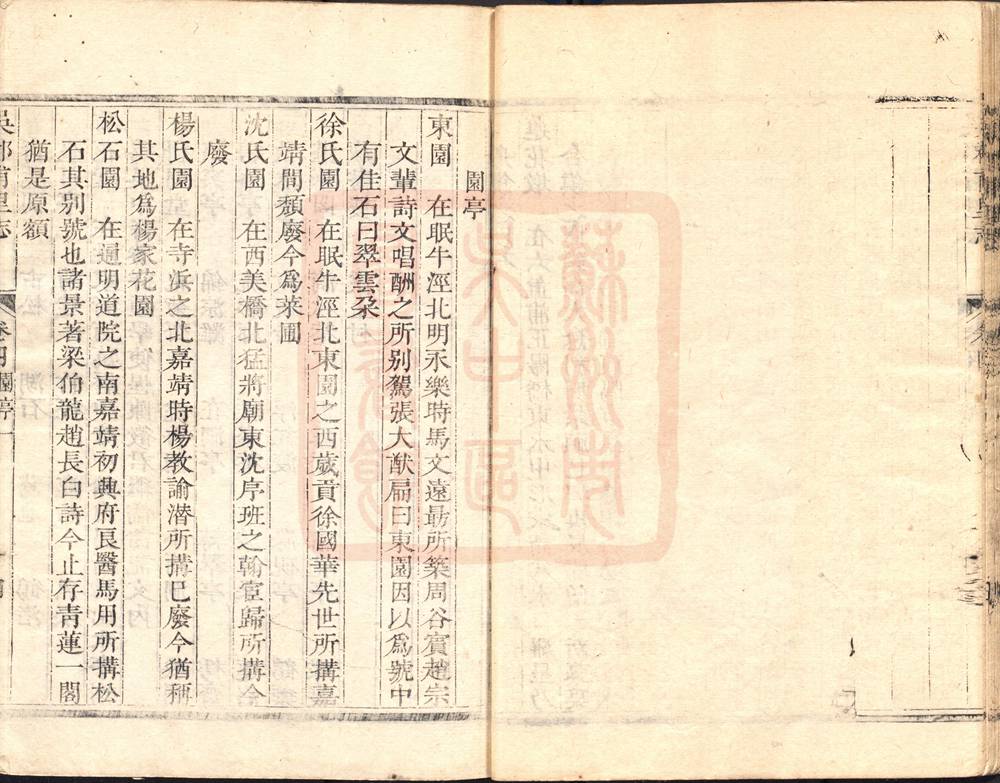 園亭
東園　在眠牛涇北明永樂時馬文遠最所築周谷賓趙宗
文輩詩文唱酬之所别駕張大猷扁曰東園因以爲號中
有佳石曰翠雲朶
徐氏園　在眠牛涇北東園之西歲貢徐國華先世所搆嘉
靖間頹廢今爲菜圃
沈氏園　在西美橋北猛將廟東沈序班之翰宦歸所搆今
廢
楊氏園　在寺浜之北嘉靖時楊教諭潜所搆已廢今猶稱
其地爲楊家花園
松石園　在通明道院之南嘉靖初興府良醫馬用所搆松
石其别號也諸景著梁伯龍趙長白詩今止存青蓮一閣
猶是原額
吳郡甫里志　卷四園亭一